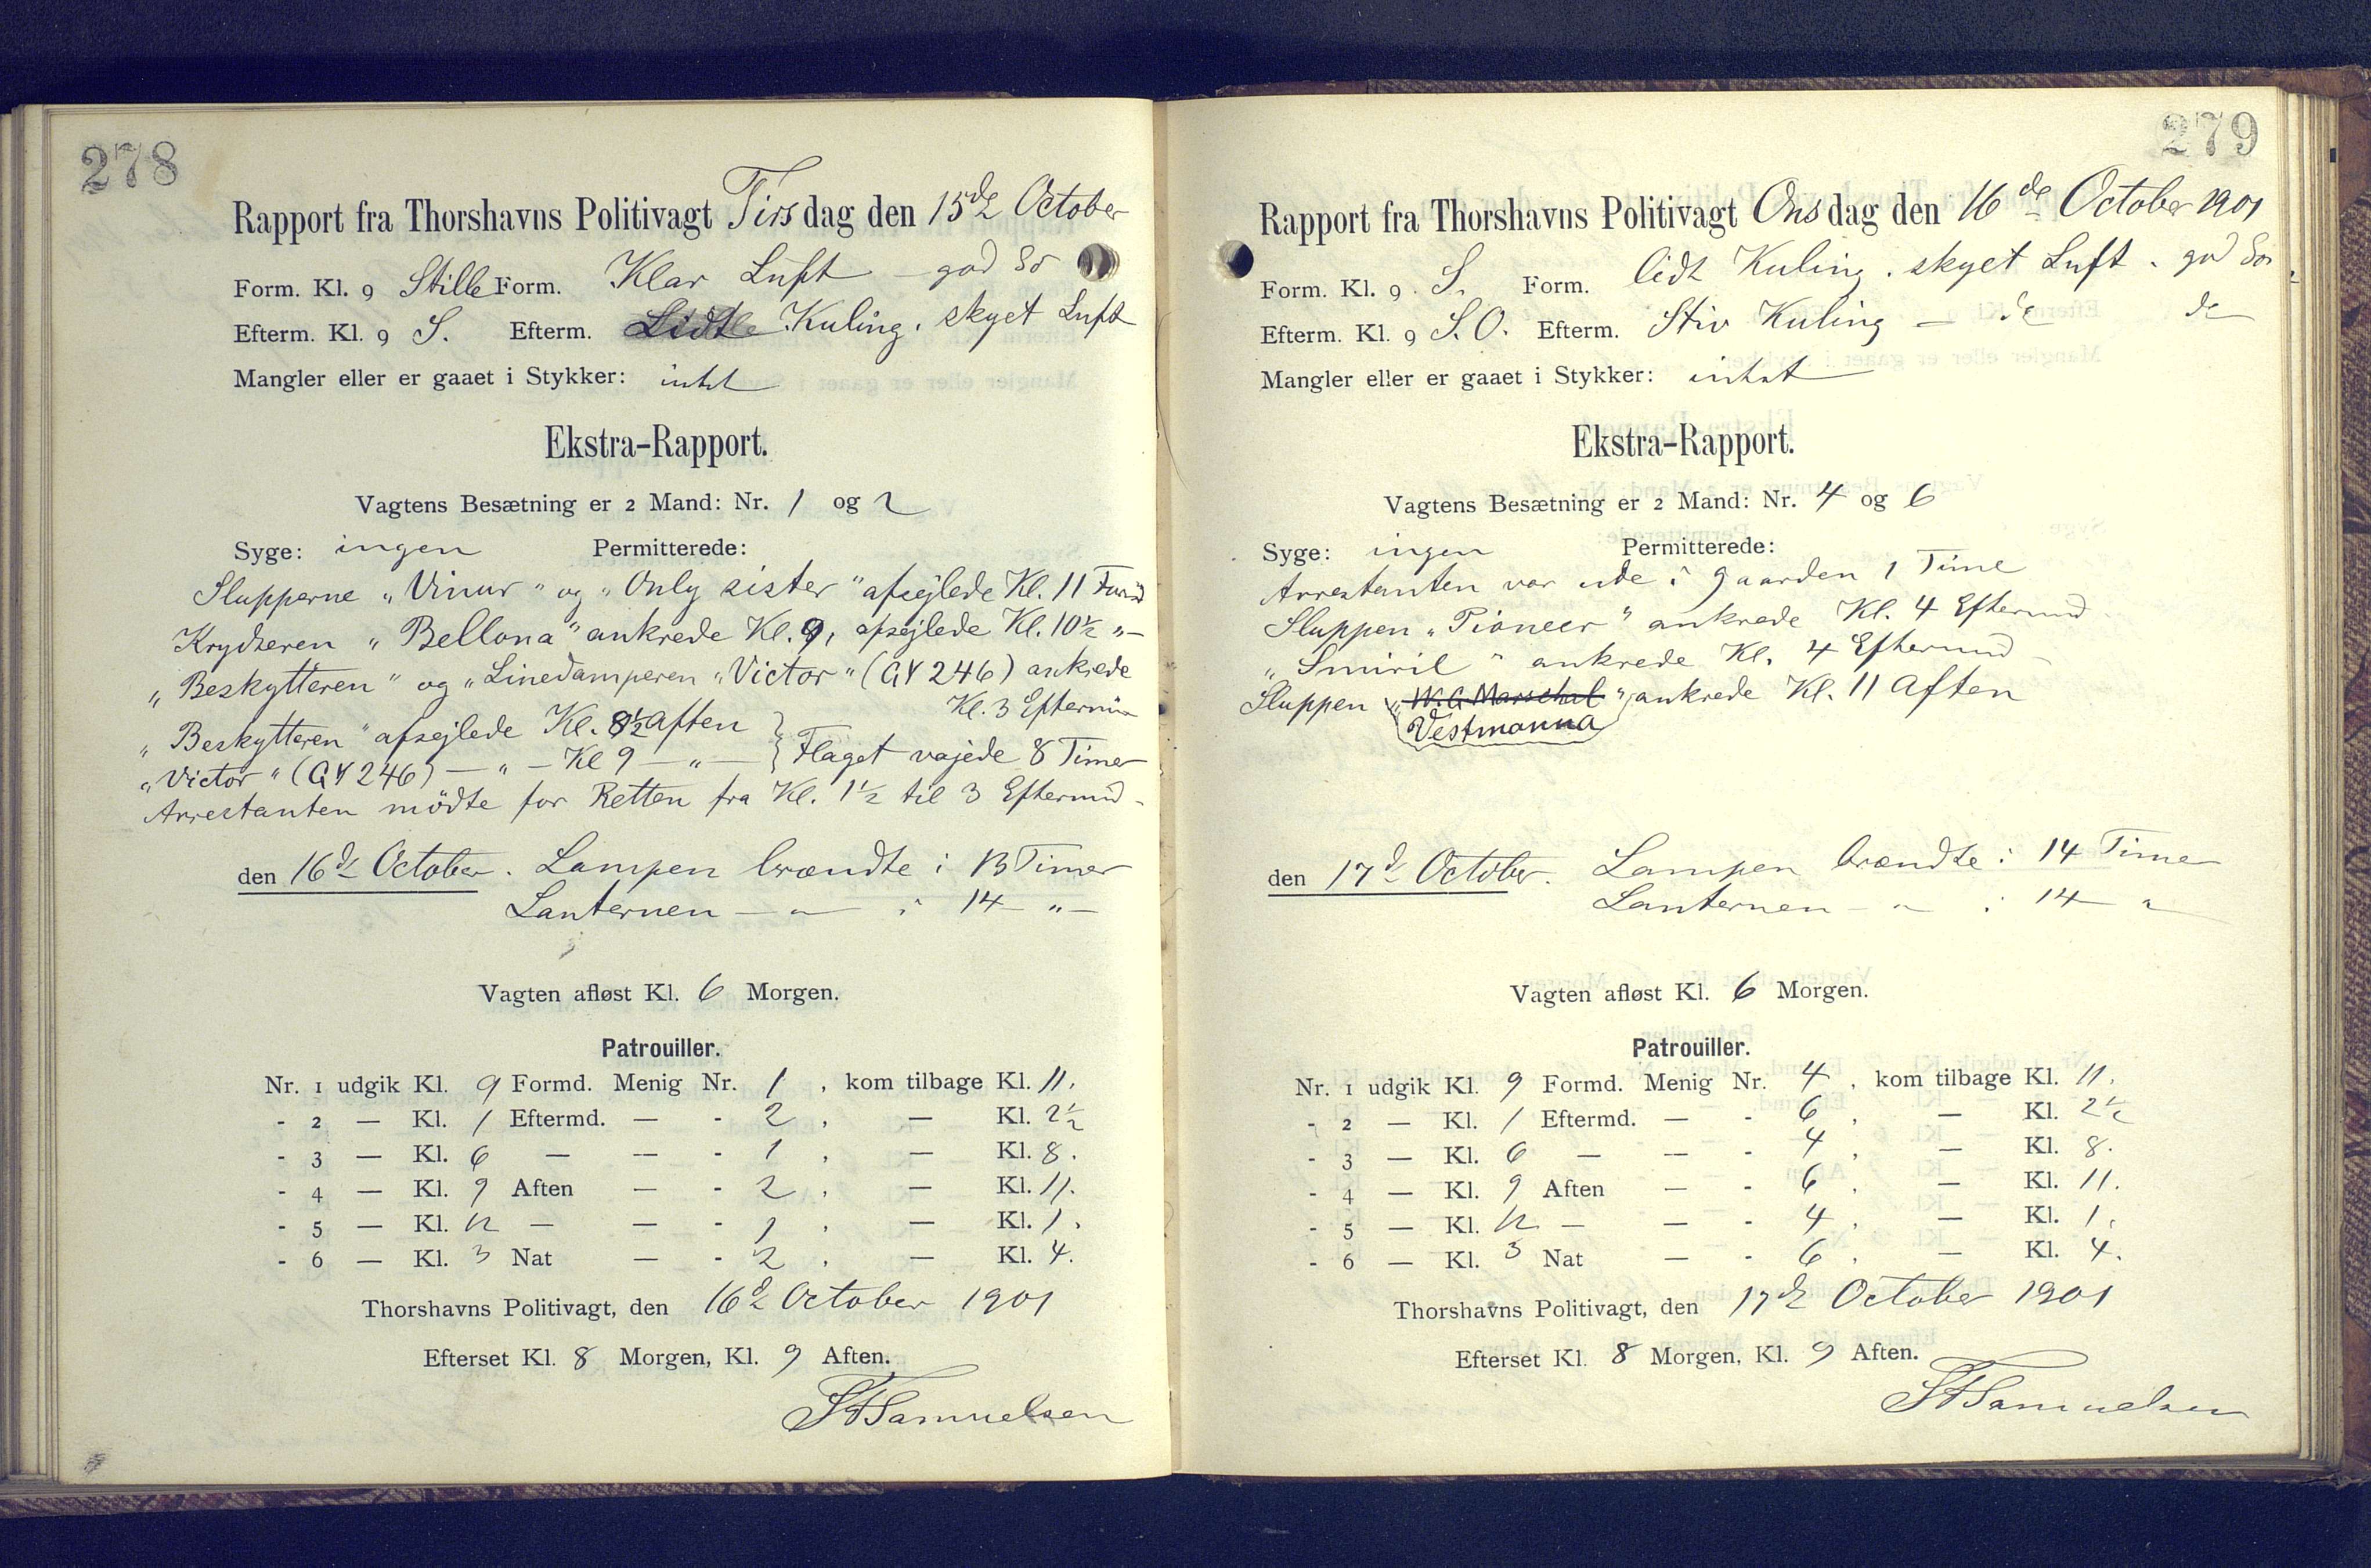 278
Rapport fra Thorshavns Politivagt Tirsdag den 15de October
Form. Kl. 9 Stille Form. Klar Luft – god Sö
Efterm. Kl. 9 S. Efterm. Lidt Kuling. skyet Luft
Mangler eller er gaaet i Stykker: intet
Ekstra-Rapport.
Vagtens Besætning er 2 Mand: Nr. 1 og 2
Syge: ingen Permitterede:
Slupperne „Vinur" og „Only sister" afsejlede Kl. 11 Formd
Krydseren „Bellona" ankrede Kl. 9, afsejlede Kl. 10½ "–
„Beskytteren" og „Linedamperen „Victor" (GY 246) ankrede
Kl. 3 Eftermd
„Beskytteren" afsejlede Kl. 8½ Aften }
„Victor" (GY 246) — " — Kl 9 — " — } Flaget vajede 8 Timer
Arrestanten mödte for Retten fra Kl. 1½ til 3 Eftermd.
den 16de October. Lampen brændte i 13 Timer
Lanternen — " — i 14 "–
Vagten afløst Kl. 6 Morgen.
Patrouiller.
Nr. 1 udgik Kl. 9 Formd. Menig Nr. 1, kom tilbage Kl. 11.
- 2 — Kl. 1 Eftermd. — - 2, — Kl. 2½
- 3 — Kl. 6 — — - 1, — Kl. 8.
- 4 — Kl. 9 Aften — - 2, — Kl. 11.
- 5 — Kl. 12 — — - 1, — Kl. 1.
- 6 — Kl. 3 Nat — - 2, — Kl. 4.
Thorshavns Politivagt, den 16de October 1901
Efterset Kl. 8 Morgen, Kl. 9 Aften.
SFSamuelsen
279
Rapport fra Thorshavns Politivagt Onsdag den 16de October 1901
Form. Kl. 9 S. Form. lidt Kuling. skyet Luft. god Sö
Efterm. Kl. 9 S.O. Efterm. Stiv Kuling — do do
Mangler eller er gaaet i Stykker: intet
Ekstra-Rapport.
Vagtens Besætning er 2 Mand: Nr. 4 og 6
Syge: ingen Permitterede:
Arrestanten var ude i Gaarden 1 Time
Sluppen „Pioneer" ankrede Kl. 4 Eftermd.
„Smiril" ankrede Kl. 4 Eftermd
Sluppen „W. G Marschal" ankrede Kl. 11 Aften
Vestmanna
den 17de October. Lampen brændte i 14 Timer
Lanternen — " — i 14 "
Vagten afløst Kl. 6 Morgen.
Patrouiller.
Nr. 1 udgik Kl. 9 Formd. Menig Nr. 4, kom tilbage Kl. 11.
- 2 — Kl. 1 Eftermd. — - 6, — Kl. 2½
- 3 — Kl. 6 — — - 4, — Kl. 8.
- 4 — Kl. 9 Aften — - 6, — Kl. 11.
- 5 — Kl. 12 — — - 4, — Kl. 1.
- 6 — Kl. 3 Nat — - 6, — Kl. 4.
Thorshavns Politivagt, den 17de October 1901
Efterset Kl. 8 Morgen, Kl. 9 Aften.
SFSamuelsen